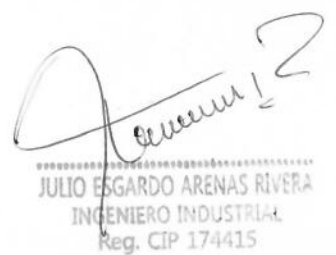 JULIO ESGARDO ARENAS RIVERA
INGENIERO INDUSTRIAL
Reg. CIP 174415